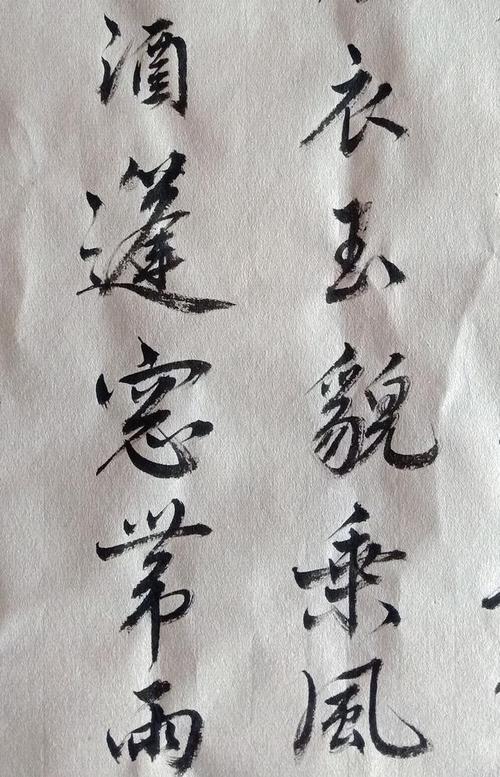 衣玉貌乘風
酒篷窓帶雨